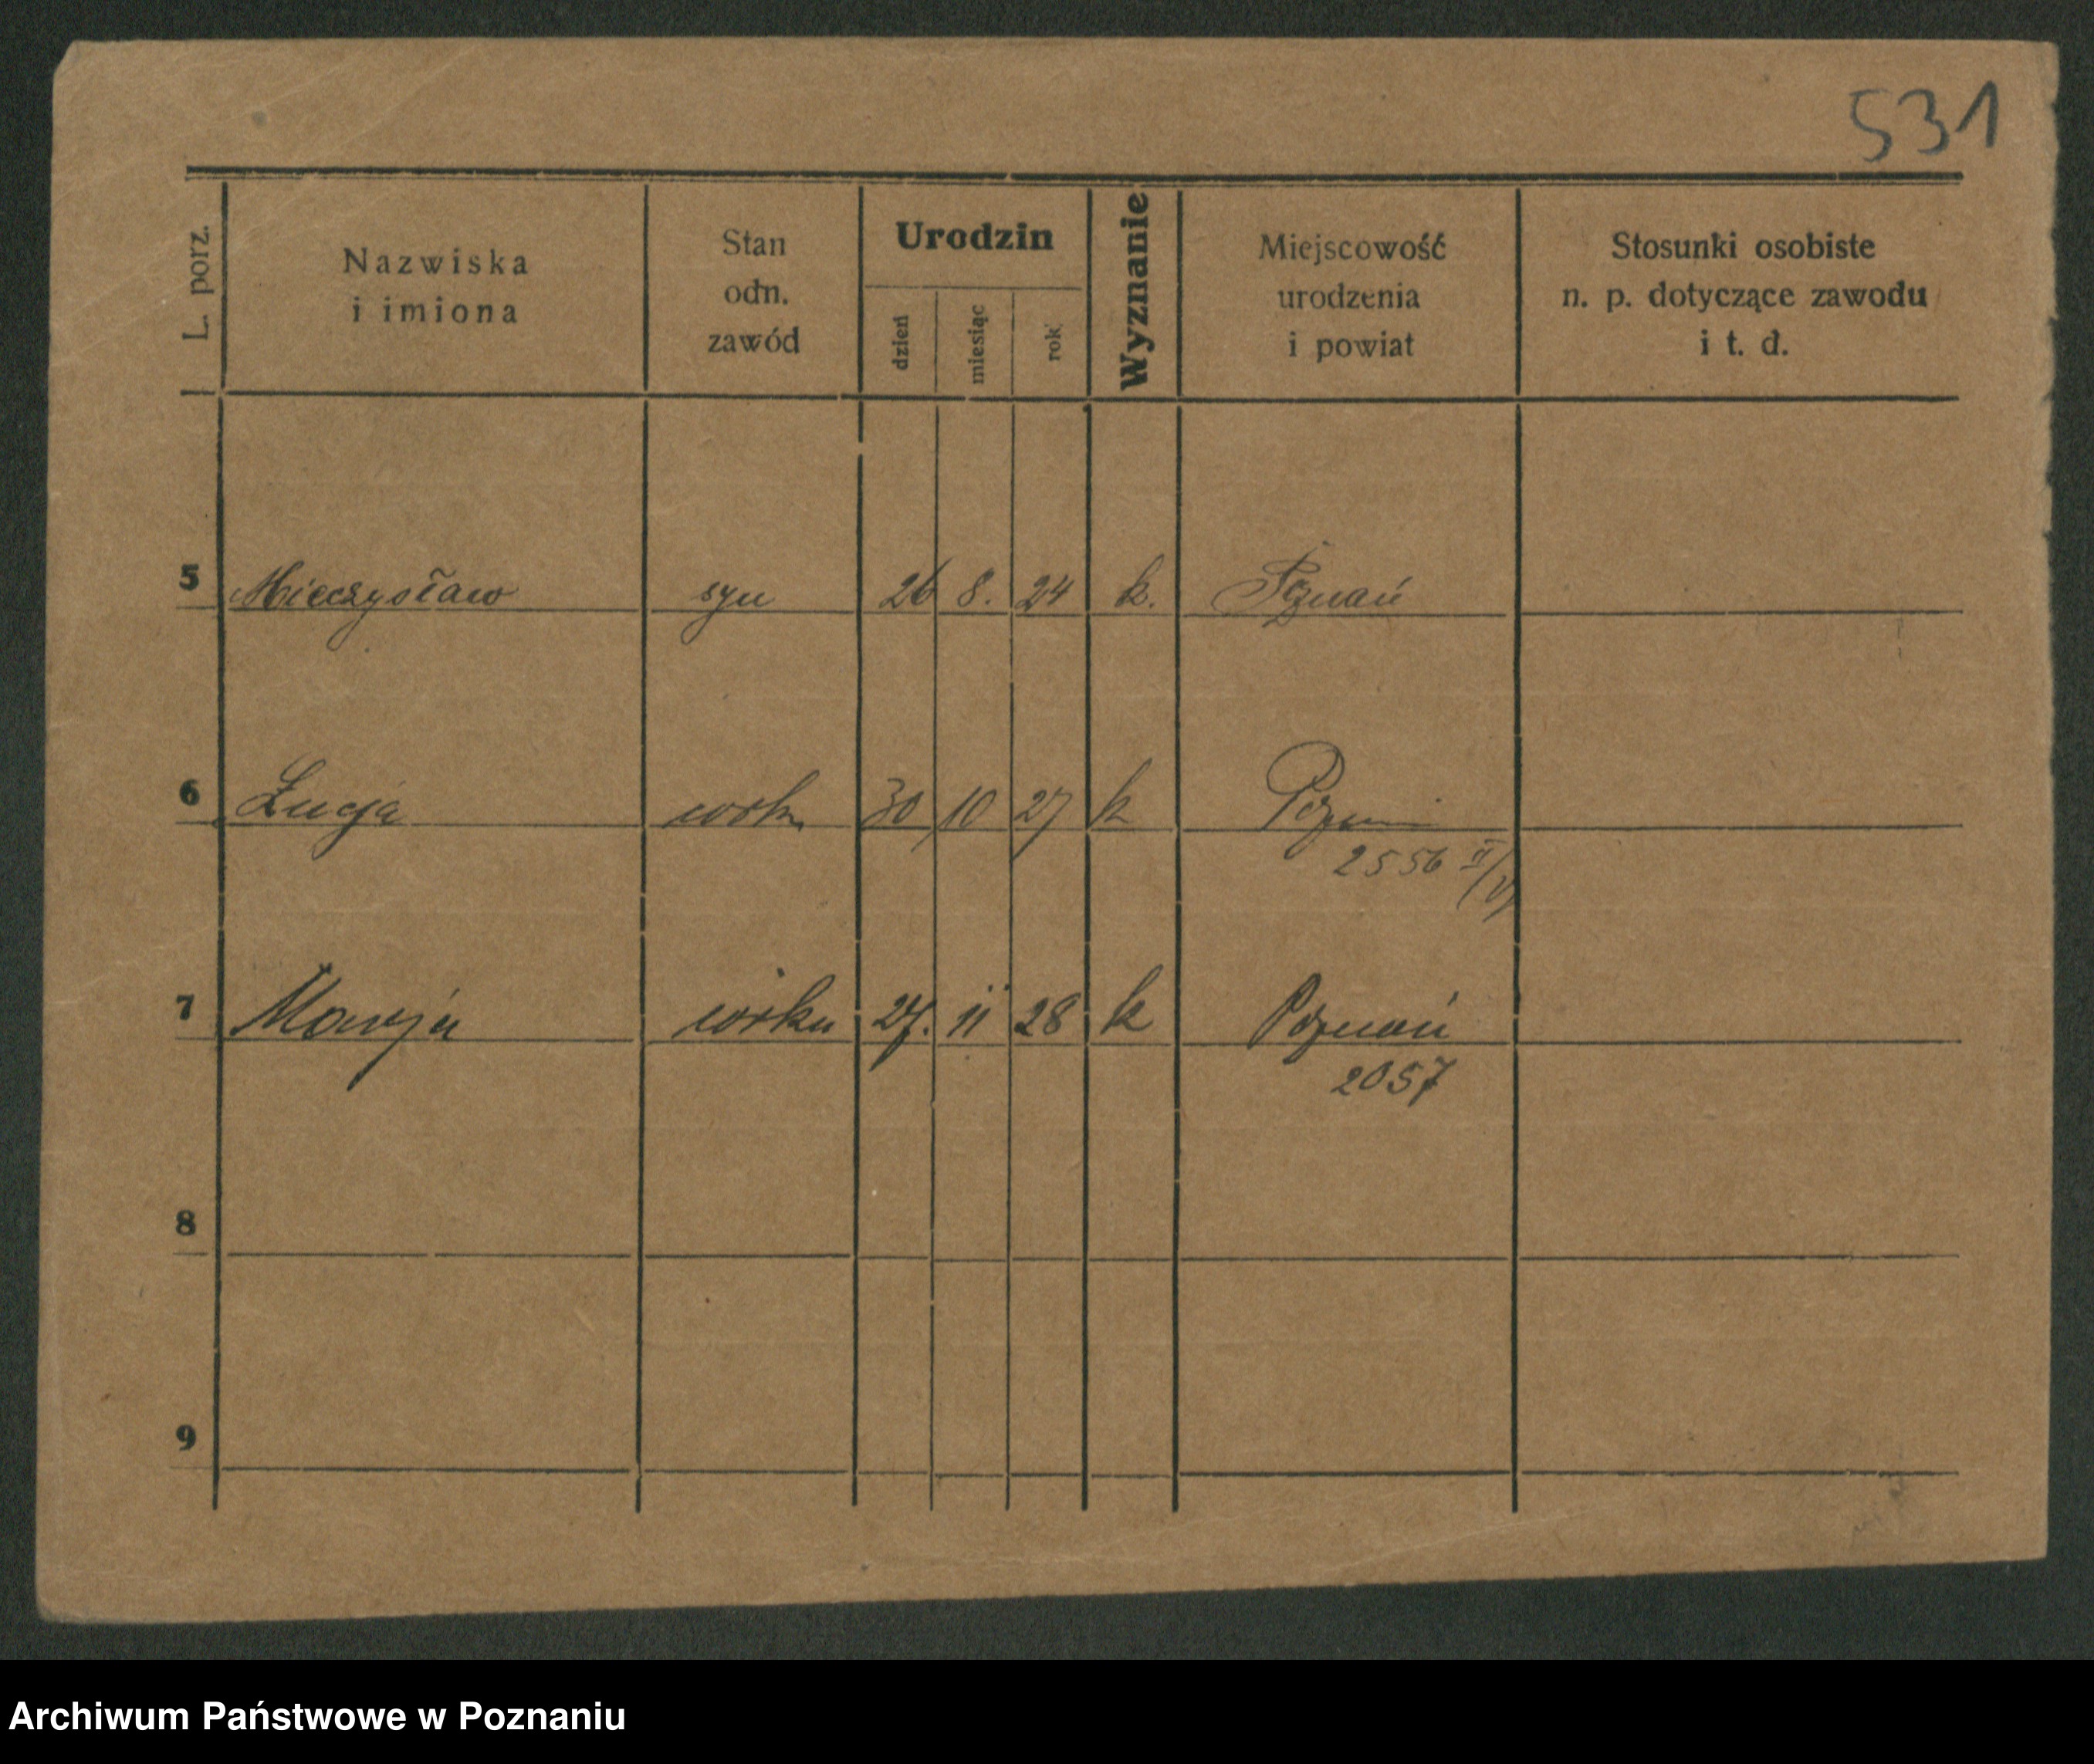 531
L. porz.
Nazwiska
i imiona
Stan
odn.
zawód
Urodzin
dzień
miesiąc
rok
Wyznanie
Miejscowość
urodzenia
i powiat
Stosunki osobiste
n. p. dotyczące zawodu
i t. d.
5 Mieczysław syn 26 8. 24 k. Poznań
6 Łucja 30 10 27 k Poznań
2556
7 Marja córka 27. 11 28 k Poznań
2057
8
9
Archiwum Państwowe w Poznaniu